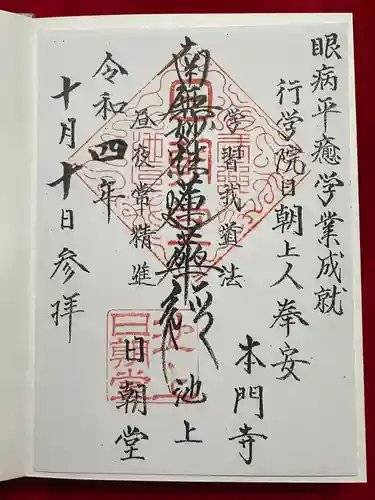 眼病平癒学業成就
行学院日朝上人奉安
本門寺
学習我道法
南無妙法蓮華経
池上
昼夜常精進
日朝堂
令和四年
十月十日参拝